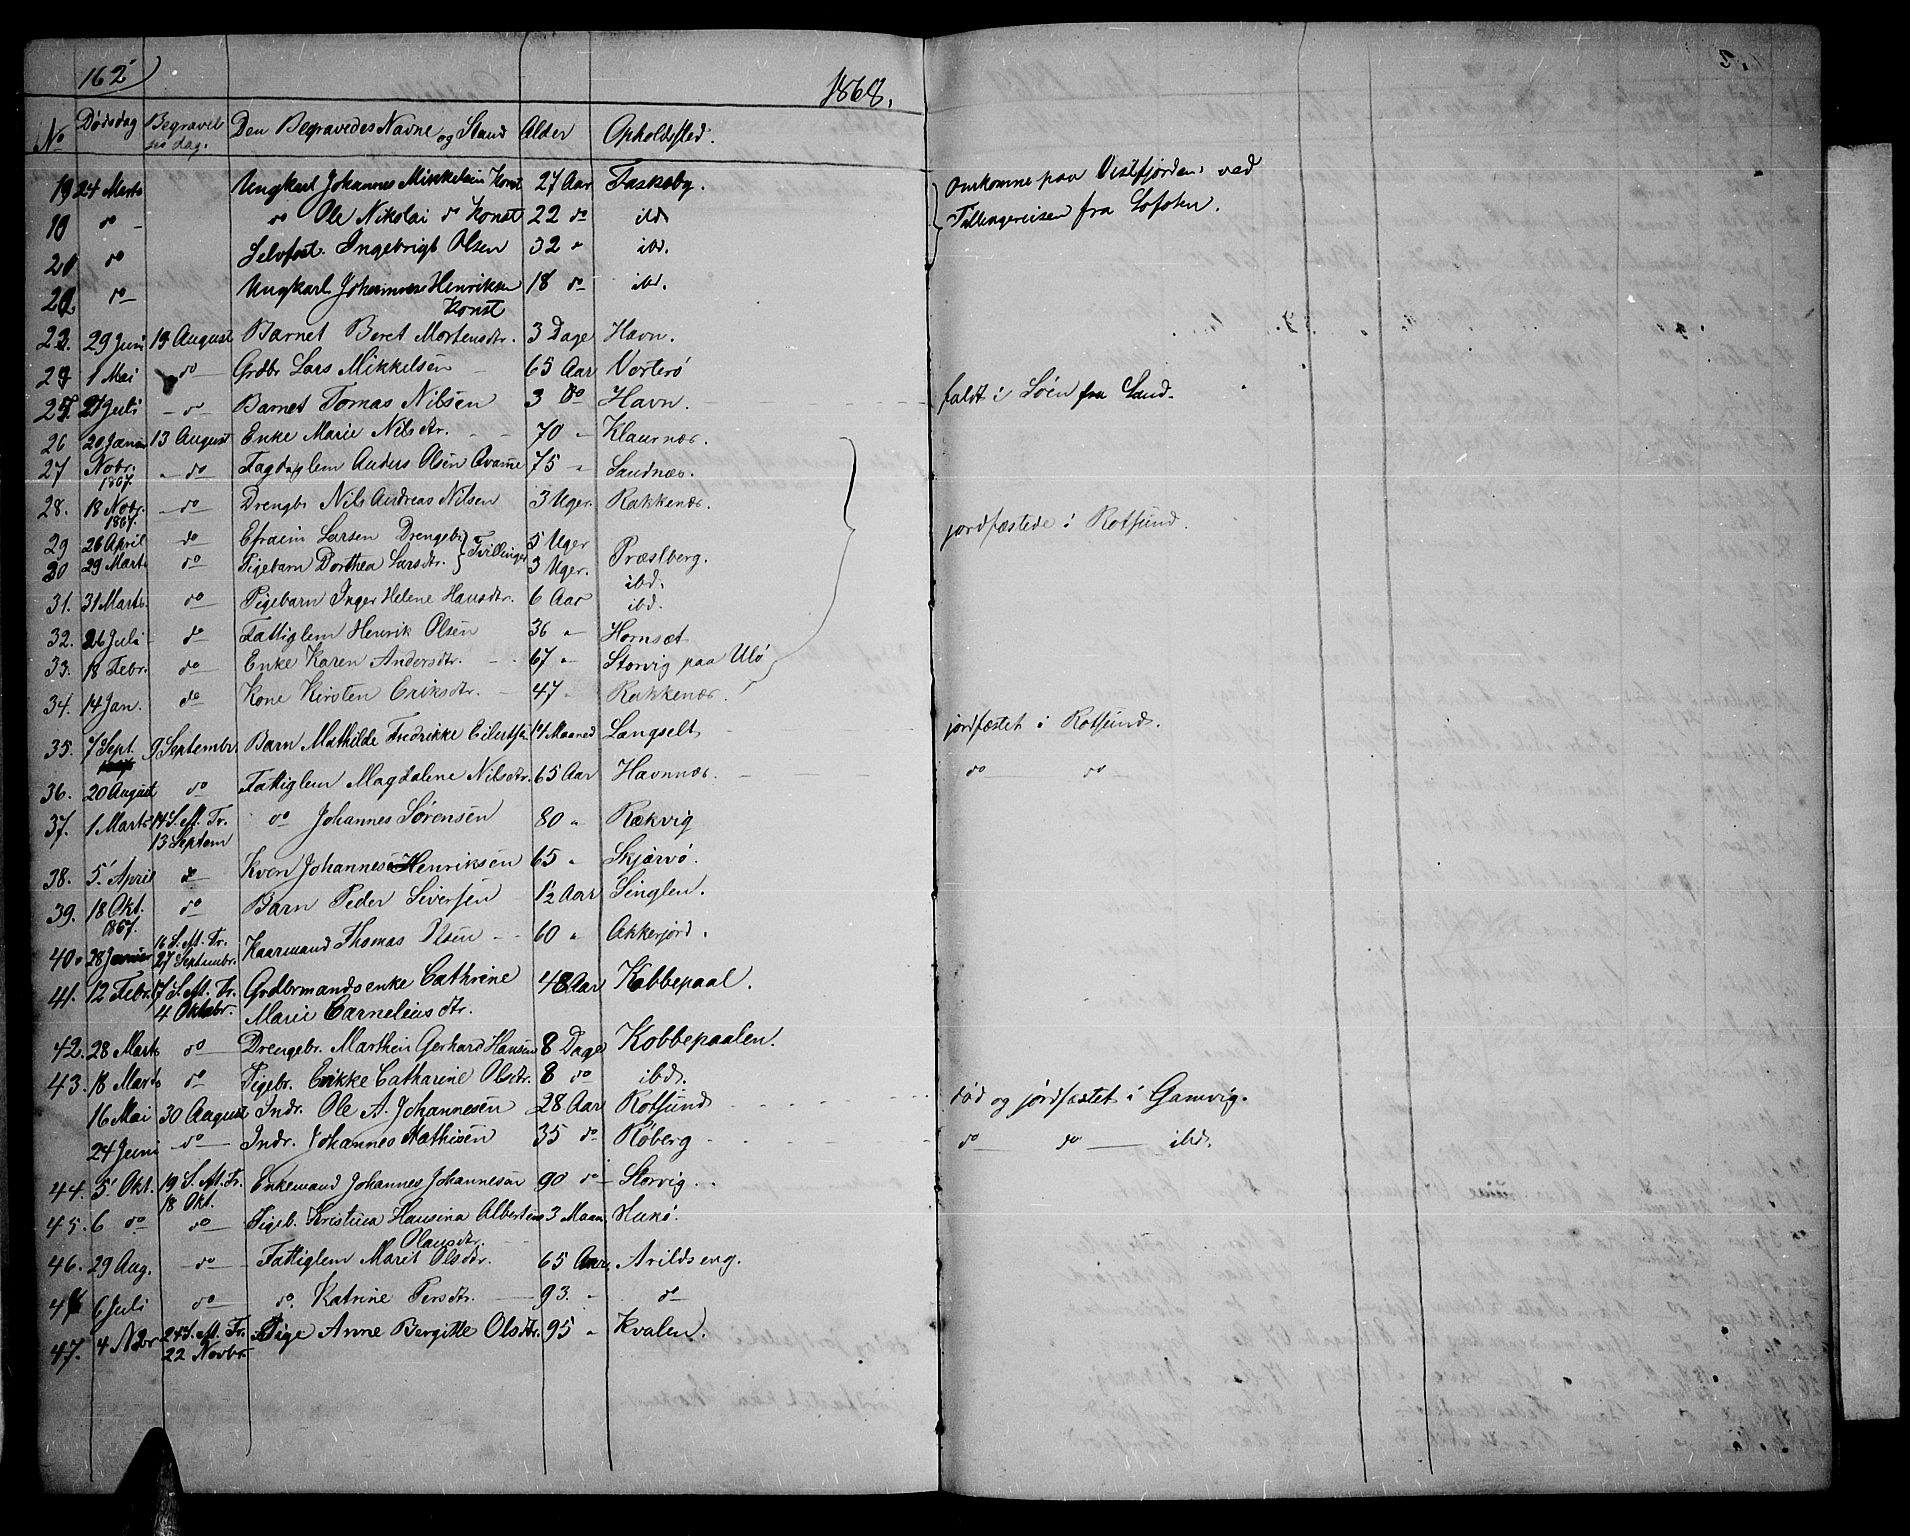 162
1868.
No Dødsdag Begravelsesdag. Den Begravedes Navne og Stand Alder Opholdssted.
19 24 Marts Ungkarl Johannes Mikkelsen Konst 27 Aar Taskeby. Omkomne paa Vestfjorden ved
do Ole Nikolai do Konst 22 do ibd Tillingereisen fra Lofoten.
do Selvfost. Ingebrigt Olsen 32 " ibd.
do Ungkarl Johannes Henriksen Konst 18 do ibd.
23. 29 Juni 19 August Barnet Beret Mortensdtr. 3 Dage Havn.
24 1 Mai do Grdbr Lars Mikkelsen 65 Aar Vorterö
25 Juli do Barnet Tomas Nilsen 3 do Havn. faldt i Söen fra Land.
26 20 Januar 13 August Enke Marie Nilsdtr. 70 " Klaurnæs.
27 Nobr. 1867. do Fattiglem Anders Olsen Qvæne 75 " Sandnæs.
28. 18 Nobr. 1867. do Drengbr Nils Andreas Nilsen 3 Uger. Rakkenæs. jordfæstede i Rotsund.
29 26 April do Efraim Larsen Drengeb. } Tvillinger 5 Uger Præstberg.
30 29 Marts do Pigebarn Dorthea Larsdtr. 3 Uger. ibd.
31. 31 Marts. do Pigebarn Inger Helene Hansdtr. 6 Aar ibd.
32. 26 Juli do Fattiglem Henrik Olsen 36 " Hornsæt
33. 18 Febr. do Enke Karen Andersdtr. 67 " Storvig paa Ulö
34. 14 Jan. do Kone Kirsten Eriksdtr. 47 " Rakkenæs.
35. 7 Sept. 9 Septembr. Barn Mathilde Fredrikke Eilertsen 14 Maaned Langselt jordfæstet i Rotsund.
36. 20 August do Fattiglem Magdalene Nilsdtr. 65 Aar Havnnæs. do do
37. 1 Marts 14 S. Af. Tr. 13 Septem do Johannes Sørensen 80 " Rækvig
38. 5 April do Kven Johannes Henriksen 65 " Skjærvö.
39. 18 Okt. 1867. do Barn Peder Siversen 1½ Aar Singlen.
40. 28 Januar 16 S. Af. Tr. 27 Septembr. Kaarmand Thomas Olsen 60 " Akkerjord.
41. 12 Febr. 17 S. Af. Tr. 4 Oktobr. Grdbrmandsenke Cathrine Marie Carneliusdtr. 48 Aar Kobbepaal.
42. 28 Marts do Drengebr. Marthin Gerhard Hansen 8 Dage Kobbepaalen.
43. 18 Marts do Pigebr. Erikke Catharine Olsdtr. 8 do ibd.
16 Mai 30 August Indr. Ole A. Johannesen 28 Aar Rotsund död og jordfæstet i Gamvig.
24 Juni do Indr. Johannes Mathisen 35 do Röberg do do ibd.
44. 5 Okt. 19 S. Af. Tr. 18 Okt. Enkemand Johannes Johannesen 90 do Storvig.
45. 6 do do Pigeb. Kristina Hansina Albertine Olausdtr. 3 Maan. Hakö.
46. 29 Aug. do Fattiglem Marit Olsdtr. 65 Aar Arildseng.
6 Juli do do. Katrine Persdtr. 93. " do
47. 4 Nobr 24 S. Af. Tr. 22 Novbr. Pige Anne Bergitte Olsdtr. 95 " Kvalen.